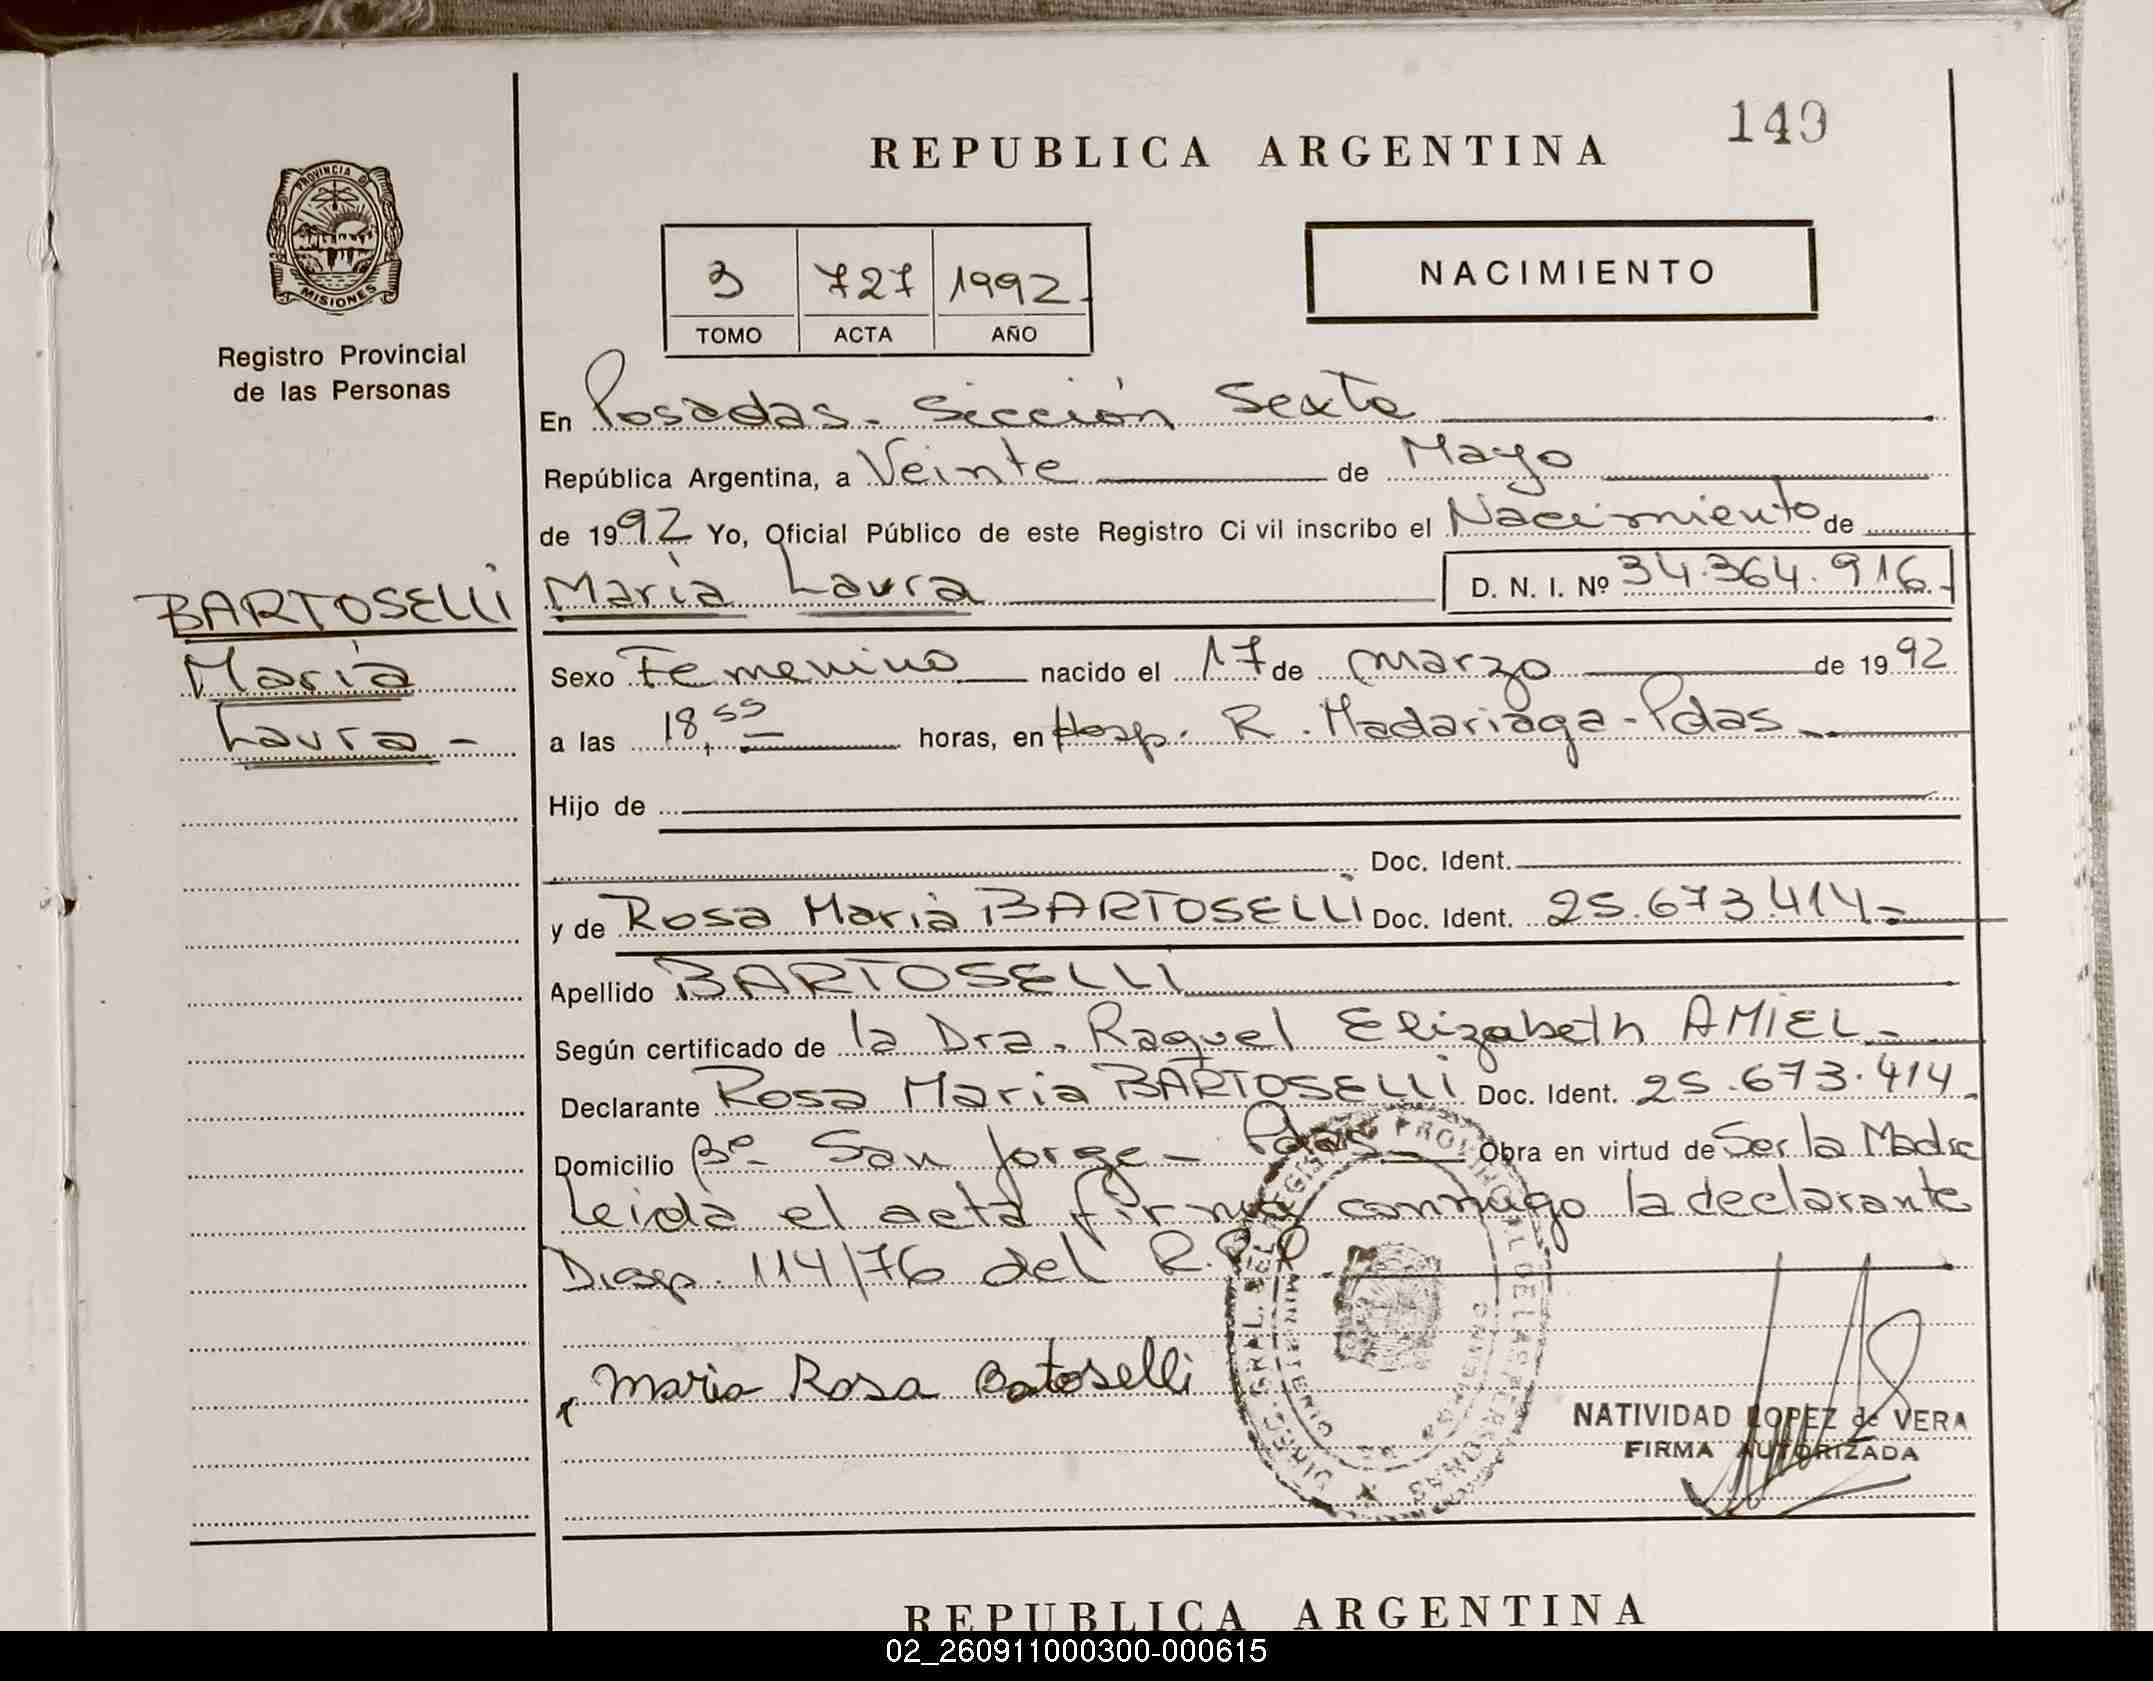 149
REPUBLICA ARGENTINA
PROVINCIA DE
MISIONES
Registro Provincial
de las Personas
3 727 1992
TOMO ACTA AÑO
NACIMIENTO
En Posadas - Sección Sexta
República Argentina, a Veinte de Mayo
de 1992 Yo, Oficial Público de este Registro Civil inscribo el Nacimiento de
BARTOSELLI María Laura D. N. I. Nº 34.364.916.-
María
Laura -
Sexo Femenino nacido el 17 de marzo de 1992
a las 18,55 horas, en Hosp. R. Madariaga - Pdas
Hijo de
Doc. Ident.
y de Rosa María BARTOSELLI Doc. Ident. 25.673.414-
Apellido BARTOSELLI
Según certificado de la Dra. Raquel Elizabeth AMIEL -
Declarante Rosa María BARTOSELLI Doc. Ident. 25.673.414
Domicilio Bº San Jorge - Pdas Obra en virtud de Ser la Madre
Leida el acta firma conmigo la declarante
Disp. 114/76 del R.P.P
Maria Rosa Batoselli
NATIVIDAD LOPEZ de VERA
FIRMA AUTORIZADA
REPUBLICA ARGENTINA
02_260911000300-000615